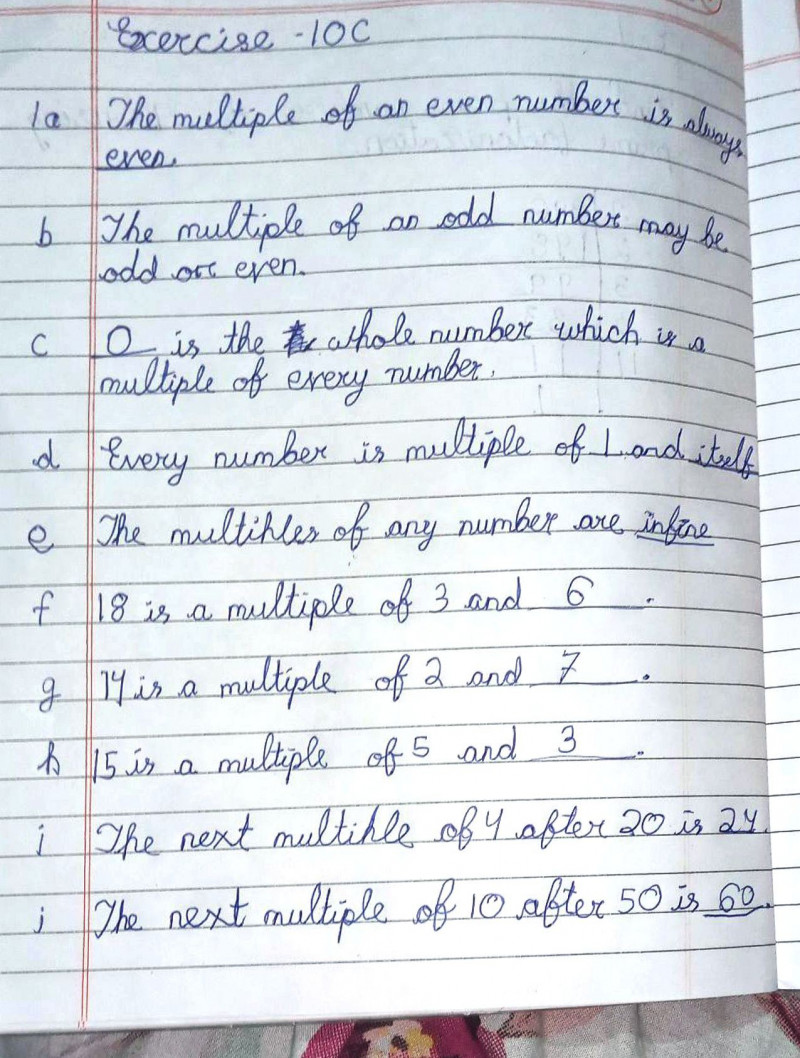 Exercise - 10C
1a The multiple of an even number is always
even.
b The multiple of an odd number may be
odd or even.
c 0 is the whole number which is a
multiple of every number.
d Every number is multiple of 1 and itself
e The multihles of any number are infine
f 18 is a multiple of 3 and 6.
g 14 is a multiple of 2 and 7.
h 15 is a multiple of 5 and 3.
i The next multihle of 4 after 20 is 24.
j The next multiple of 10 after 50 is 60.